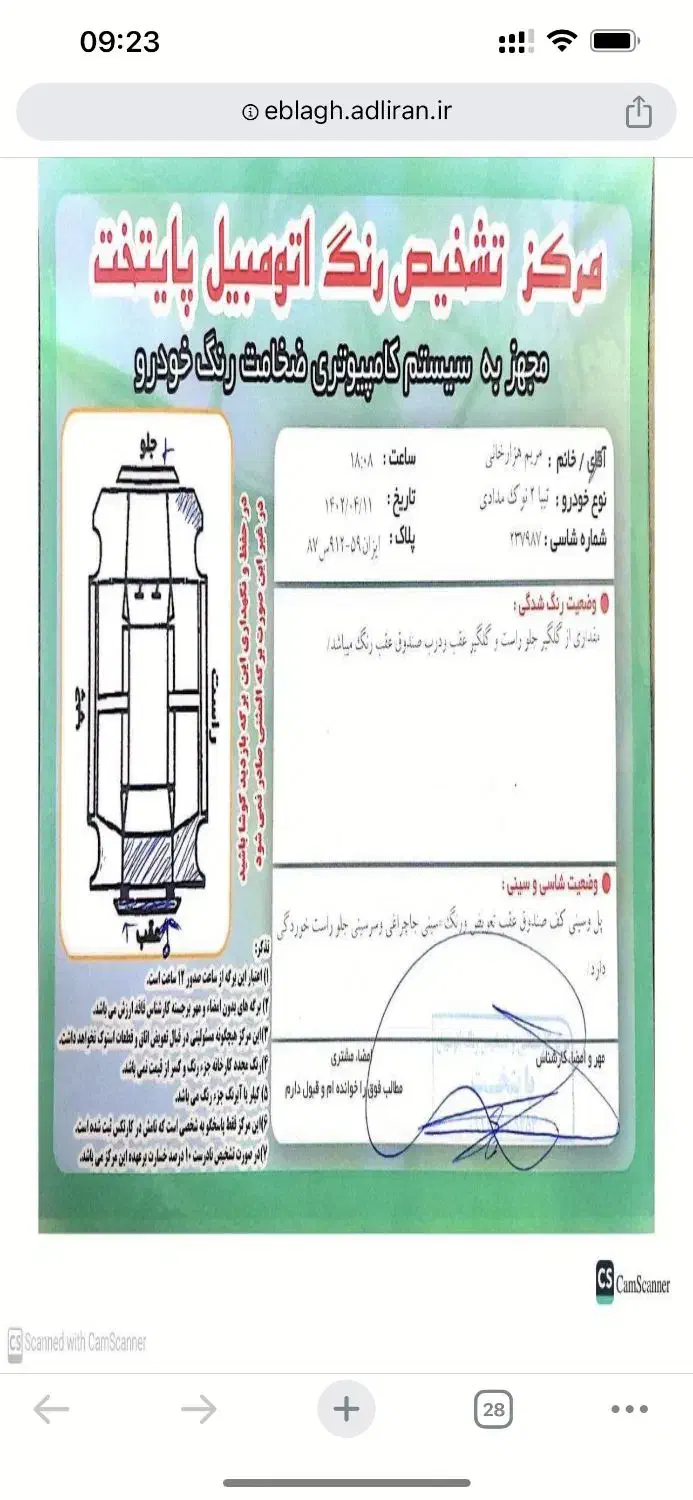 09:23
eblagh.adliran.ir
مرکز تشخیص رنگ اتومبیل پایتخت
مجهز به سیستم کامپیوتری ضخامت رنگ خودرو
آقای / خانم : مریم هزارخانی
ساعت : ۱۸:۰۸
نوع خودرو : تیبا ۲ نوک مدادی
تاریخ : ۱۴۰۲/۰۴/۱۱
شماره شاسی : ۲۳۷۹۸۷
پلاک : ایران ۵۹-۹۱۲س۸۷
وضعیت رنگ شدگی :
مقداری از گلگیر جلو راست و گلگیر عقب ودرب صندوق عقب رنگ میباشد/
وضعیت شاسی و سینی :
پل وسینی کف صندوق عقب تعویض ورنگ-سینی جاچراغی وسرسینی جلو راست خوردگی
دارد/
مهر و امضا کارشناس
امضاء مشتری
مطالب فوق را خوانده ام و قبول دارم
جلو
راست
چپ
عقب
در حفظ و نگهداری این برگه بازدید کوشا باشید
در غیر این صورت برگه المثنی صادر نمی شود
تذکر:
۱) اعتبار این برگه از ساعت صدور ۱۲ ساعت است.
۲) برگه های بدون امضاء و مهر برجسته کارشناس فاقد ارزش می باشد.
۳) این مرکز هیچگونه مسئولیتی در قبال تعویض اتاق و قطعات استوک نخواهد داشت.
۴) رنگ مجدد کارخانه جزء رنگ و کسر از قیمت نمی باشد.
۵) کیلر یا آبرنگ جزء رنگ می باشد.
۶) این مرکز فقط پاسخگو به شخصی است که نامش در کارتکس ثبت شده است.
۷) در صورت تشخیص نادرست ۱۰ درصد خسارت برعهده این مرکز می باشد.
CS CamScanner
CS Scanned with CamScanner
28